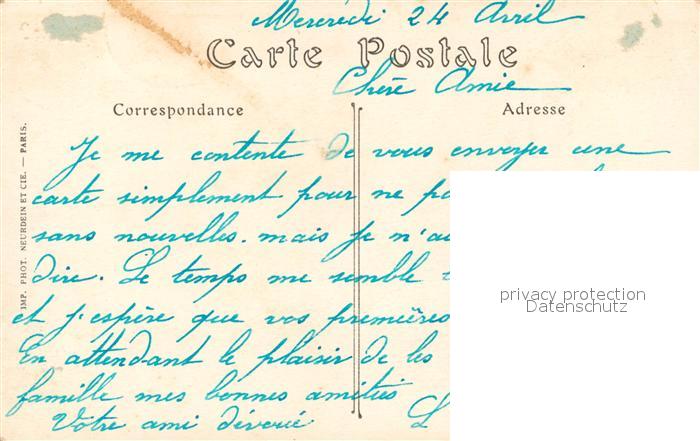 Mercredi 24 Avril
Carte Postale
Chère Amie
Correspondance
Adresse
Je me contente de vous envoyer une
carte simplement pour ne
sans nouvelles. mais je n'
dire. Le temps me semble
et j'espère que vos premières
En attendant le plaisir de les
famille mes bonnes amitiés
Votre ami dévoué L
IMP. PHOT. NEURDEIN ET CIE. — PARIS.
privacy protection
Datenschutz